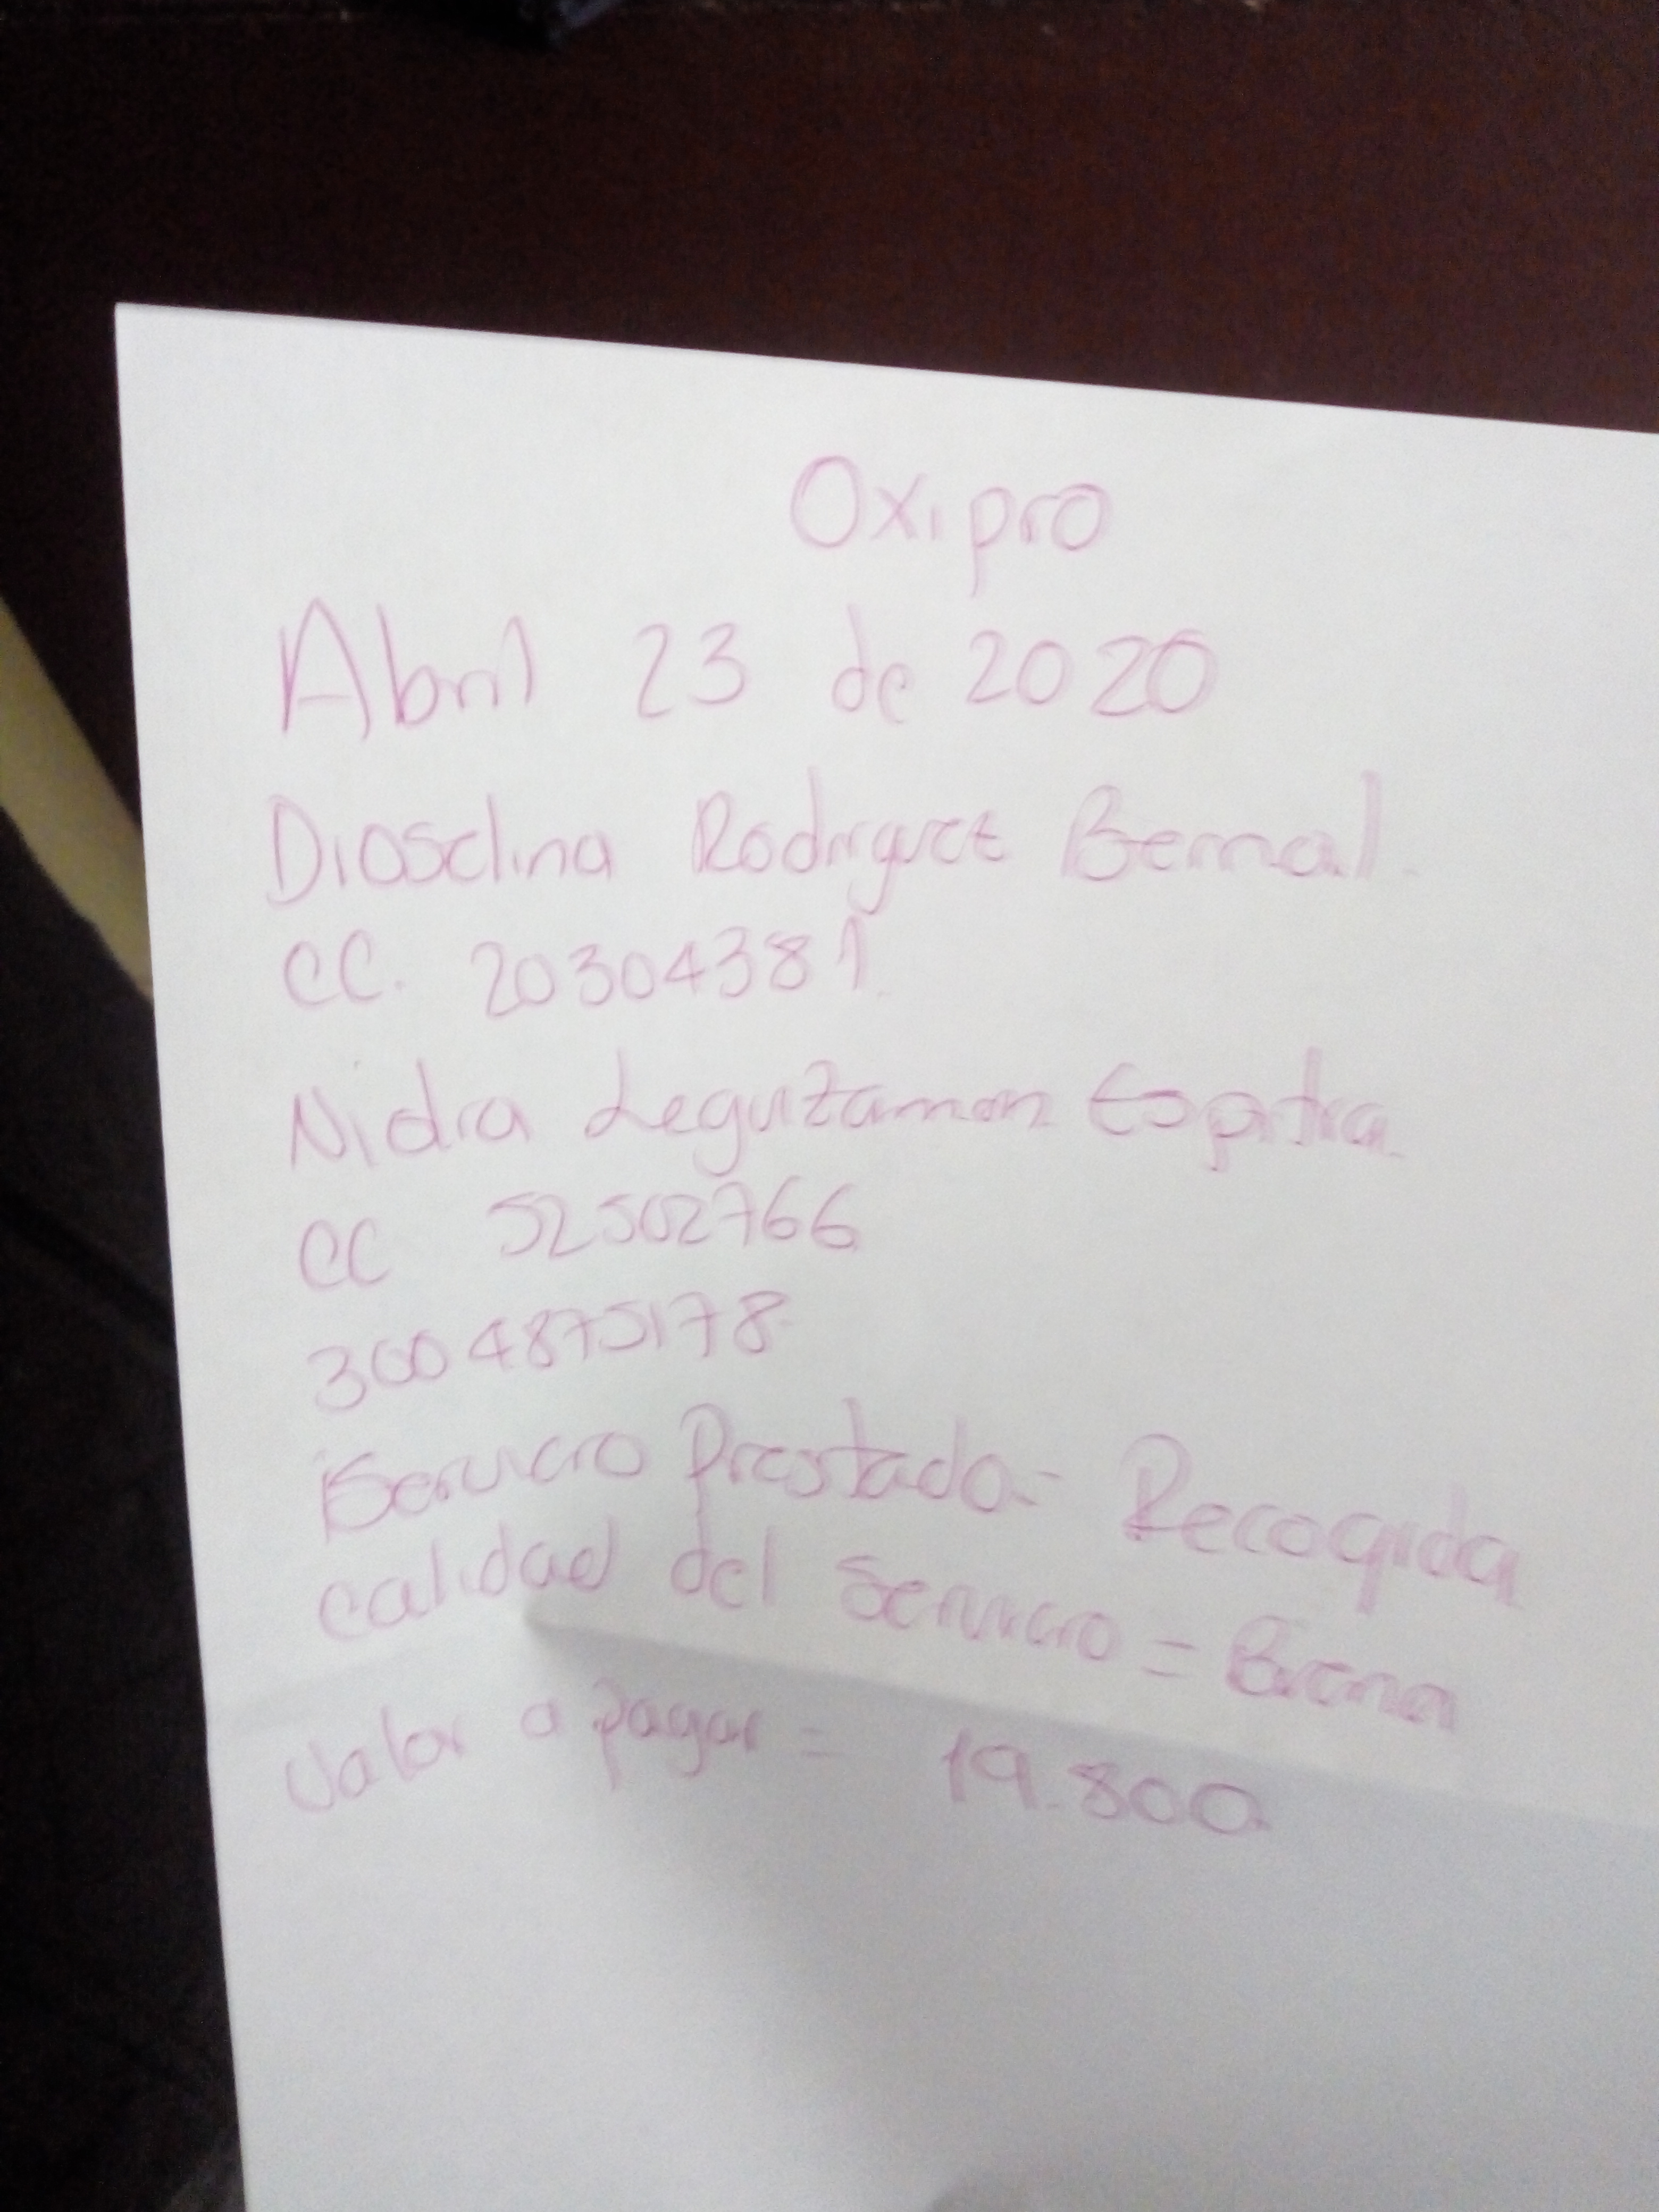 Oxipro
Abril 23 de 2020
Dioselina Rodriguez Bernal.
CC. 20304381.
Nidia Leguizamon Espitia.
CC 52502766
3004875178.
Servicio Prestado = Recogida
calidad del servicio = Buena
Valor a pagar = 19.800